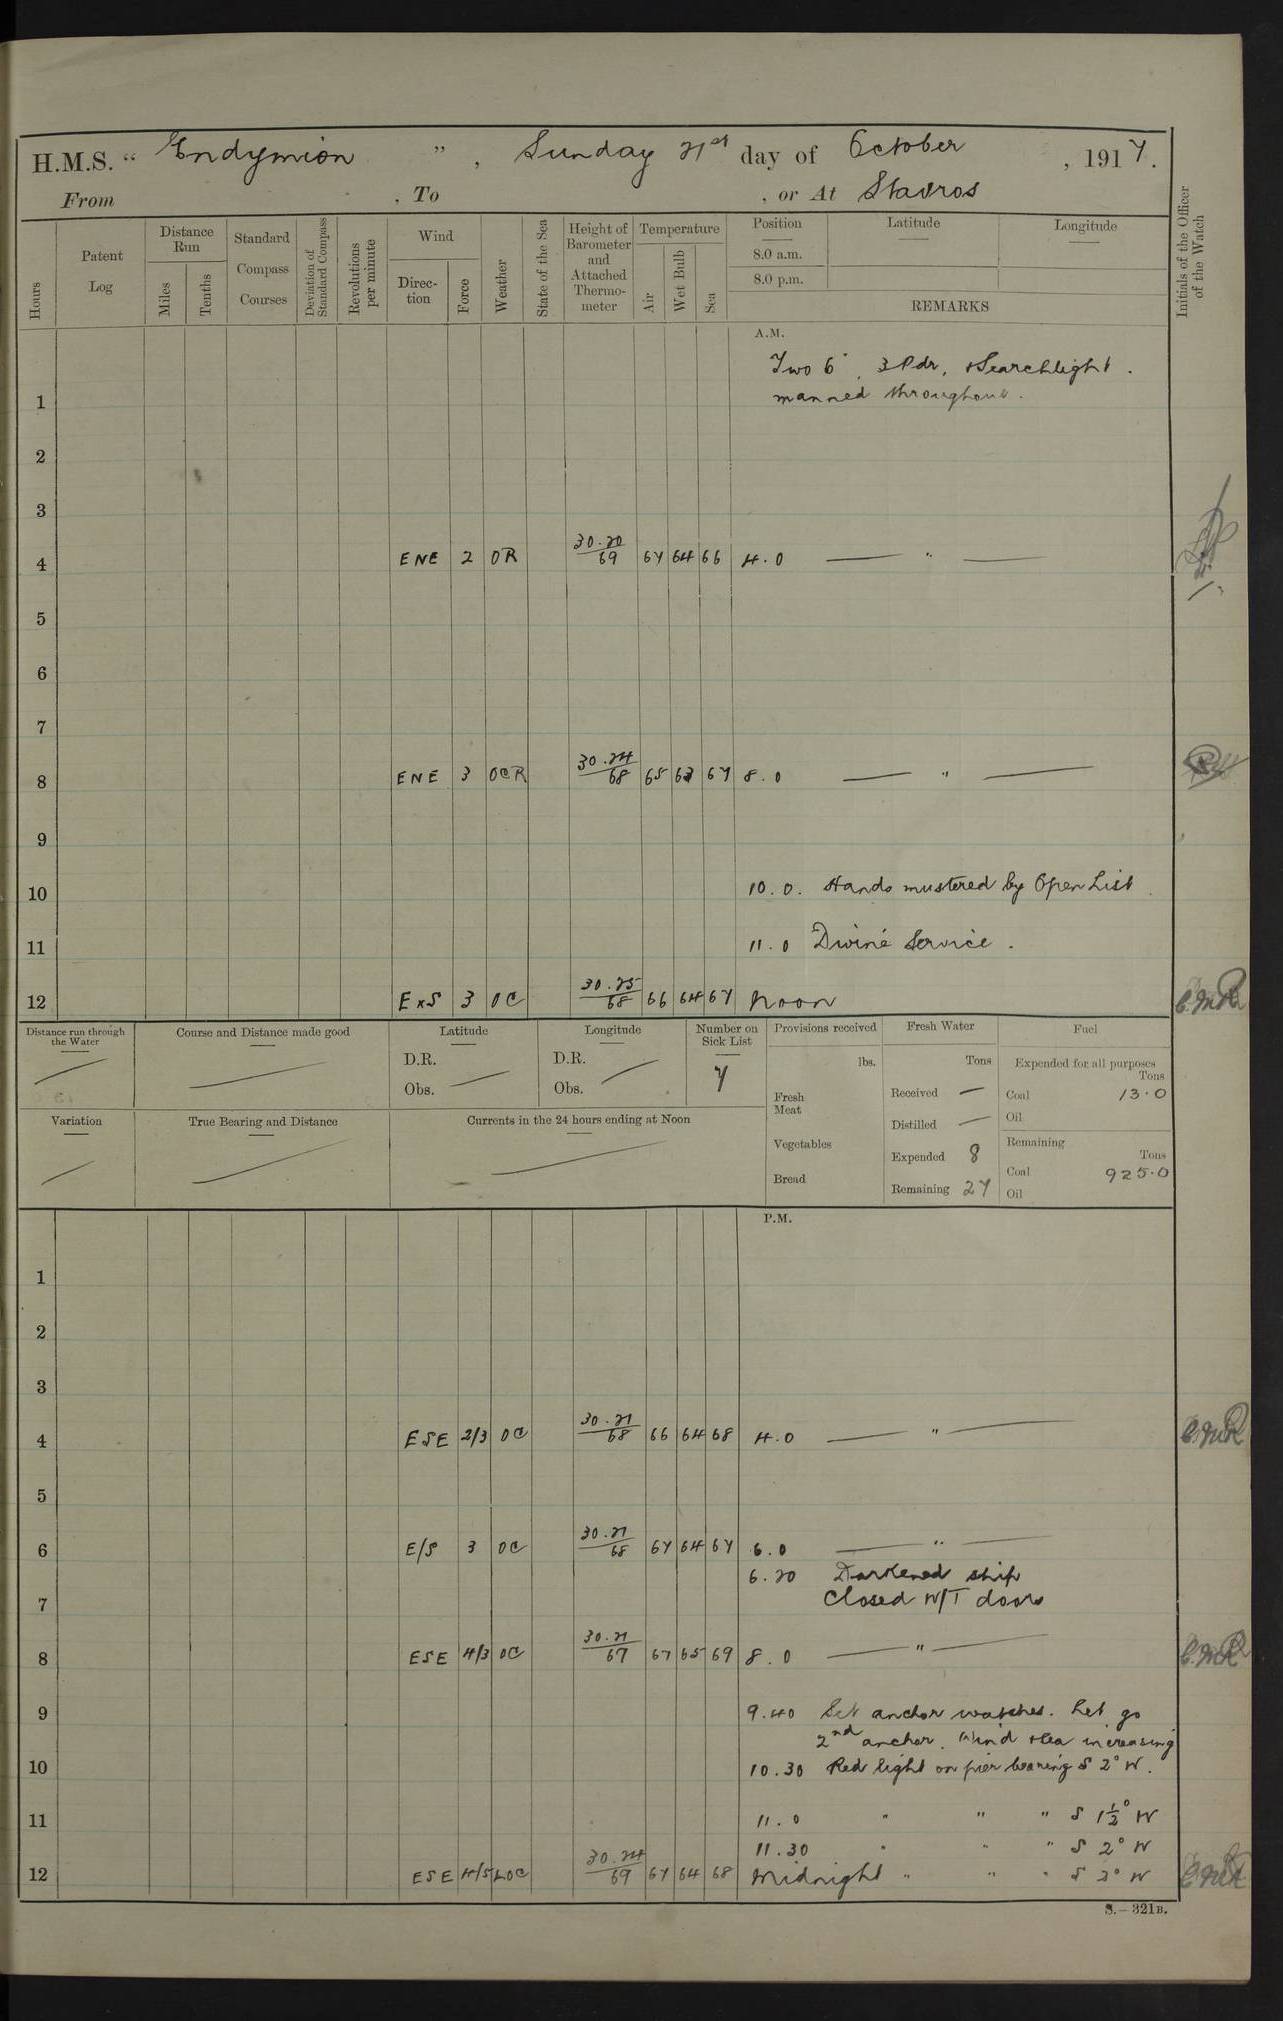 H.M.S. "Endymion", Sunday 21st day of October, 1917.
From , To , or At Stavros
Hours
Patent Log
Distance Run
Miles
Tenths
Standard Compass Courses
Deviation of Standard Compass
Revolutions per minute
Wind
Direction
Force
Weather
State of the Sea
Height of Barometer and Attached Thermometer
Temperature
Air
Wet Bulb
Sea
Position
8.0 a.m.
8.0 p.m.
Latitude
Longitude
REMARKS
Initials of the Officer of the Watch
A.M.
Two 6", 3 Pdr, & Searchlight.
1 manned throughout.
2
3
4 ENE 2 OR 30.20/69 67 64 66 4.0 — " —
5
6
7
8 ENE 3 OCR 30.24/68 65 63 67 8.0 — " —
9
10 10.0. Hands mustered by Open List.
11 11.0 Divine Service.
12 ExS 3 OC 30.25/68 66 64 67 Noon
Distance run through the Water
Course and Distance made good
Latitude
D.R.
Obs.
Longitude
D.R.
Obs.
Number on Sick List
7
Provisions received
lbs.
Fresh Meat
Vegetables
Bread
Fresh Water
Tons
Received —
Distilled —
Expended 8
Remaining 27
Fuel
Expended for all purposes
Tons
Coal 13.0
Oil
Remaining
Tons
Coal 925.0
Oil
Variation
True Bearing and Distance
Currents in the 24 hours ending at Noon
P.M.
1
2
3
4 ESE 2/3 OC 30.21/68 66 64 68 4.0 — " —
5
6 E/S 3 OC 30.21/68 67 64 67 6.0 — " —
6.20 Darkened ship
7 Closed W/T doors
8 ESE 4/3 OC 30.21/67 67 65 69 8.0 — " —
9 9.40 Set anchor watches. Let go
2nd anchor. Wind & sea increasing
10 10.30 Red light on pier bearing S 2° W.
11 11.0 " " " S 1½° W
11.30 " " " S 2° W
12 ESE 4/5 LOC 30.24/69 67 64 68 Midnight " " " S 2° W
S.—321B.